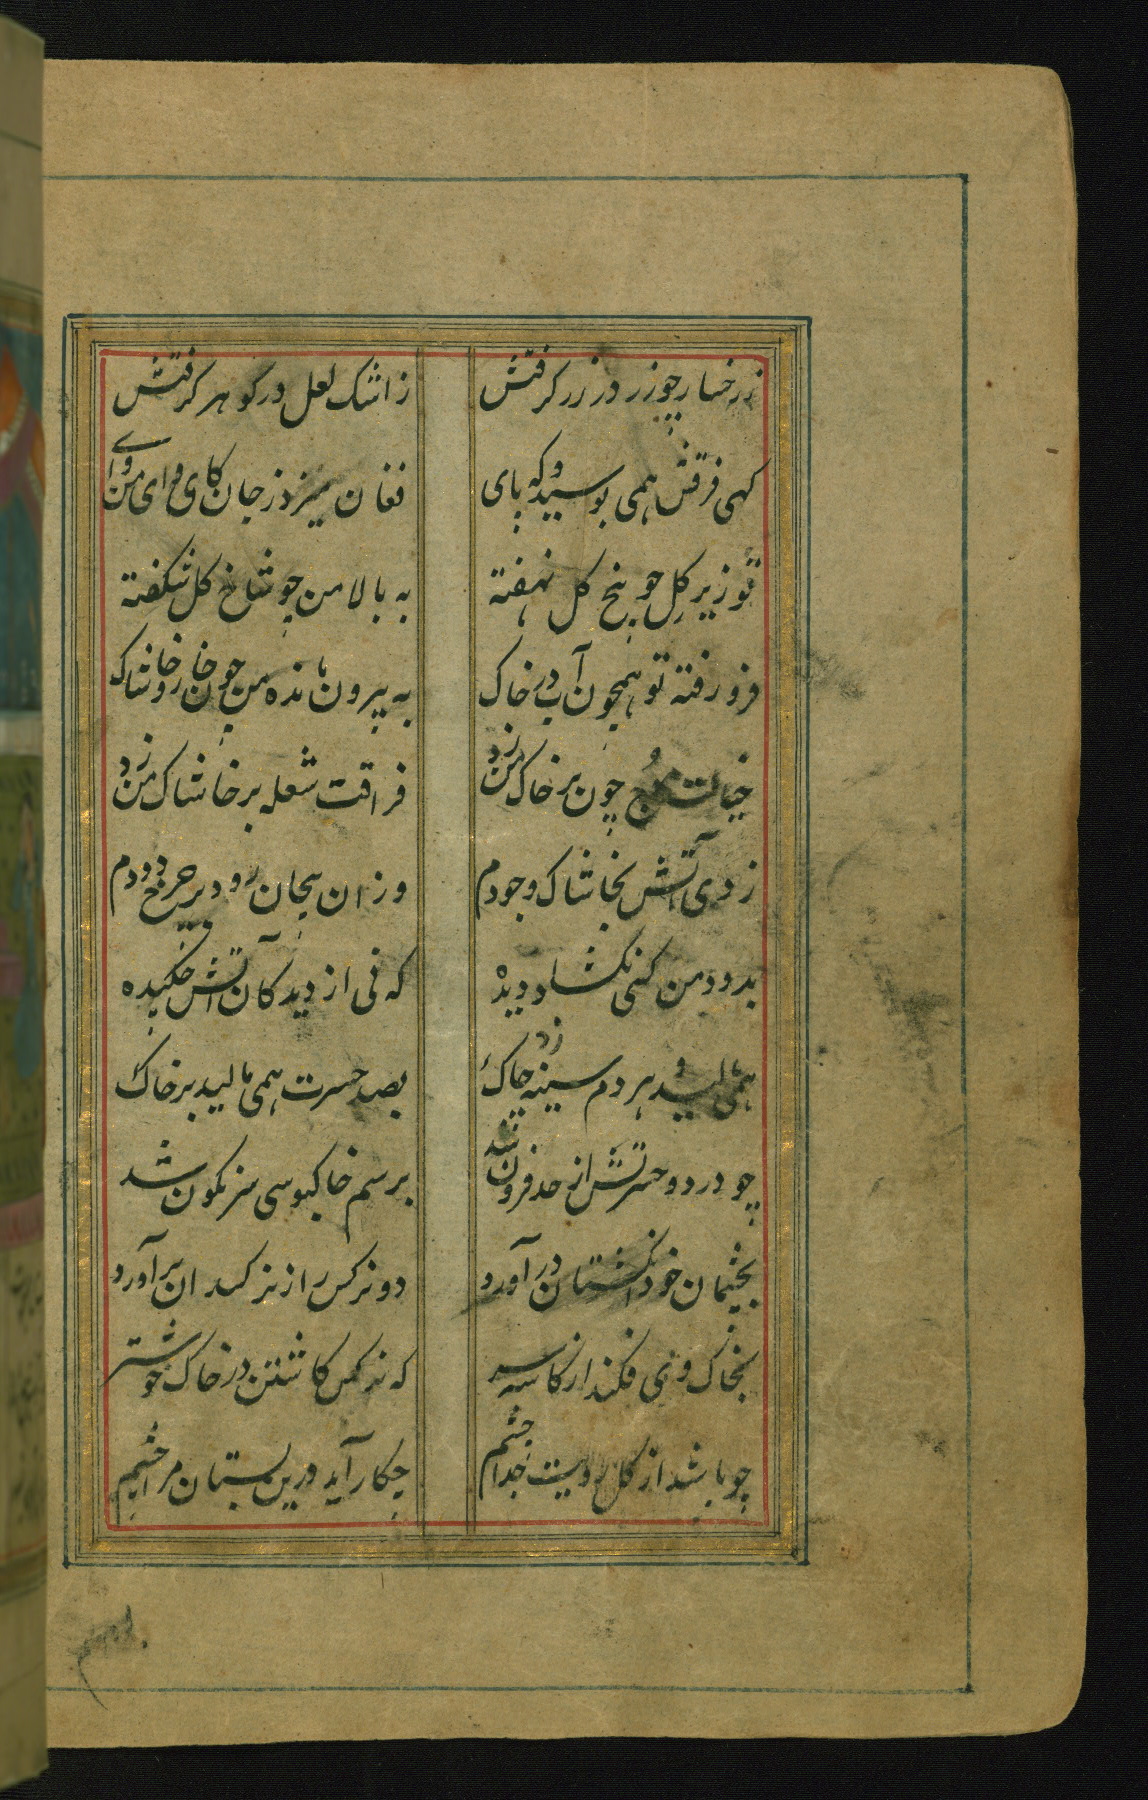 ز رخسار چو زر در زر گرفتش ز اشک لعل در گوهر گرفتش
کهی فرقش همی بوسید و که پای فغان میزد ز جان کای وای من وای
تو زیر کل چو بیخ کل نهفته به بالا من چو شاخ کل شکفته
فرو رفته تو همچون آب در خاک به بیرون مانده من چون خار و خاشاک
خیالت موج خون بر خاک من زد فراقت شعله بر خاشاک من زد
زدی آتش بخاشاک وجودم وزان بیجان رود بر چرخ دودم
بدود من کسی نکشاد دیده که نی از دیدکان آتش چکیده
همی مالید هر دم سینه چاک بصد حسرت همی مالید بر خاک
چو درد و حسرتش از حد فزون شد برسم خاکبوسی سرنکون شد
بچشمان خود انکشتان در آورد دو نرکس را ز نرکسدان برآورد
بخاک وی فکند از کاسه سر که نرکس کاشتن در خاک خوشتر
چو باشد از کل رویت جدا چشم چکار آید درین بستان مرا چشم